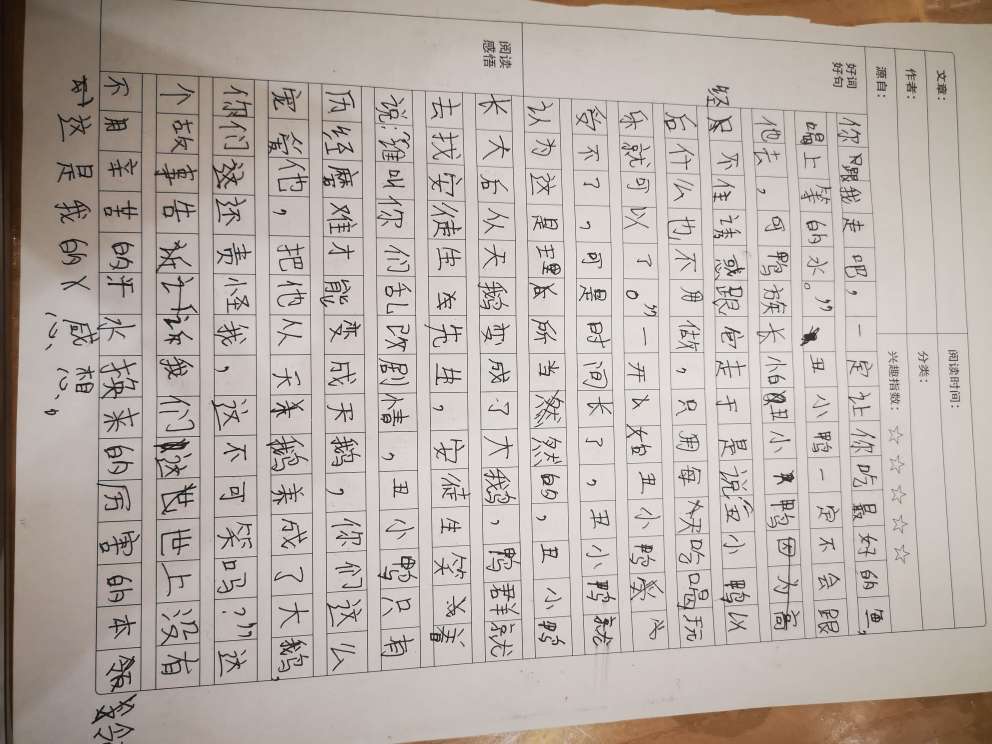 文章：
作者：
源自：
阅读时间：
分类：
兴趣指数：☆☆☆☆☆
好词
好句
你跟我走吧，一定让你吃最好的鱼，
喝上等的水。”丑小鸭一定不会跟
他去，可鸭族长怕丑小鸭因为高
经
不住诱惑跟它走于是说丑小鸭以
后什么也不用做，只用每天吃喝玩
乐就可以了。”一开始丑小鸭
受不了，可是时间长了，丑小鸭就
认为这是理所当然的，丑小鸭
阅读
感悟
长大后从天鹅变成了大鹅，鸭群就
去找安徒生先生，安徒生笑着
说：谁叫你们乱改剧情，丑小鸭只有
历经磨难才能变成天鹅，你们这么
宠爱他，把他从天鹅养成了大鹅，
你们这还责怪我，这不可笑吗？”这
个故事告诉我们世上没有
不用辛苦的汗水换来的厉害的本领
对这是我的感想。